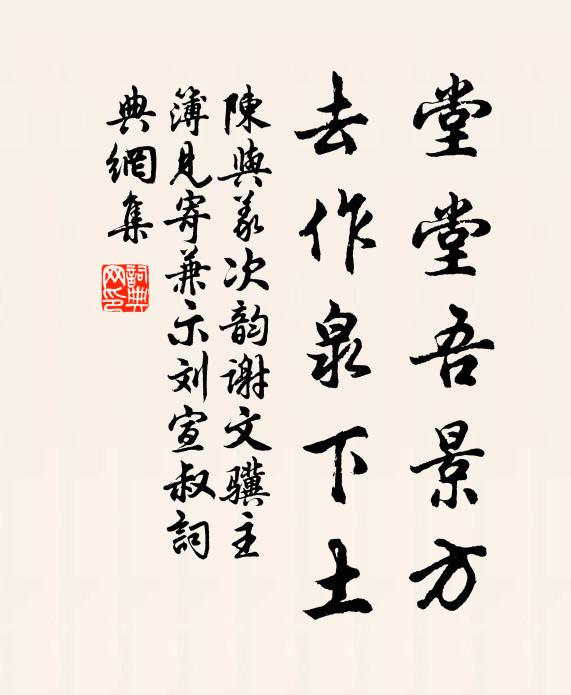 堂堂吾景方
去作泉下土
陳與義次韵谢文骥主
簿見寄兼示刘宣叔詞
典網集
詞典网印